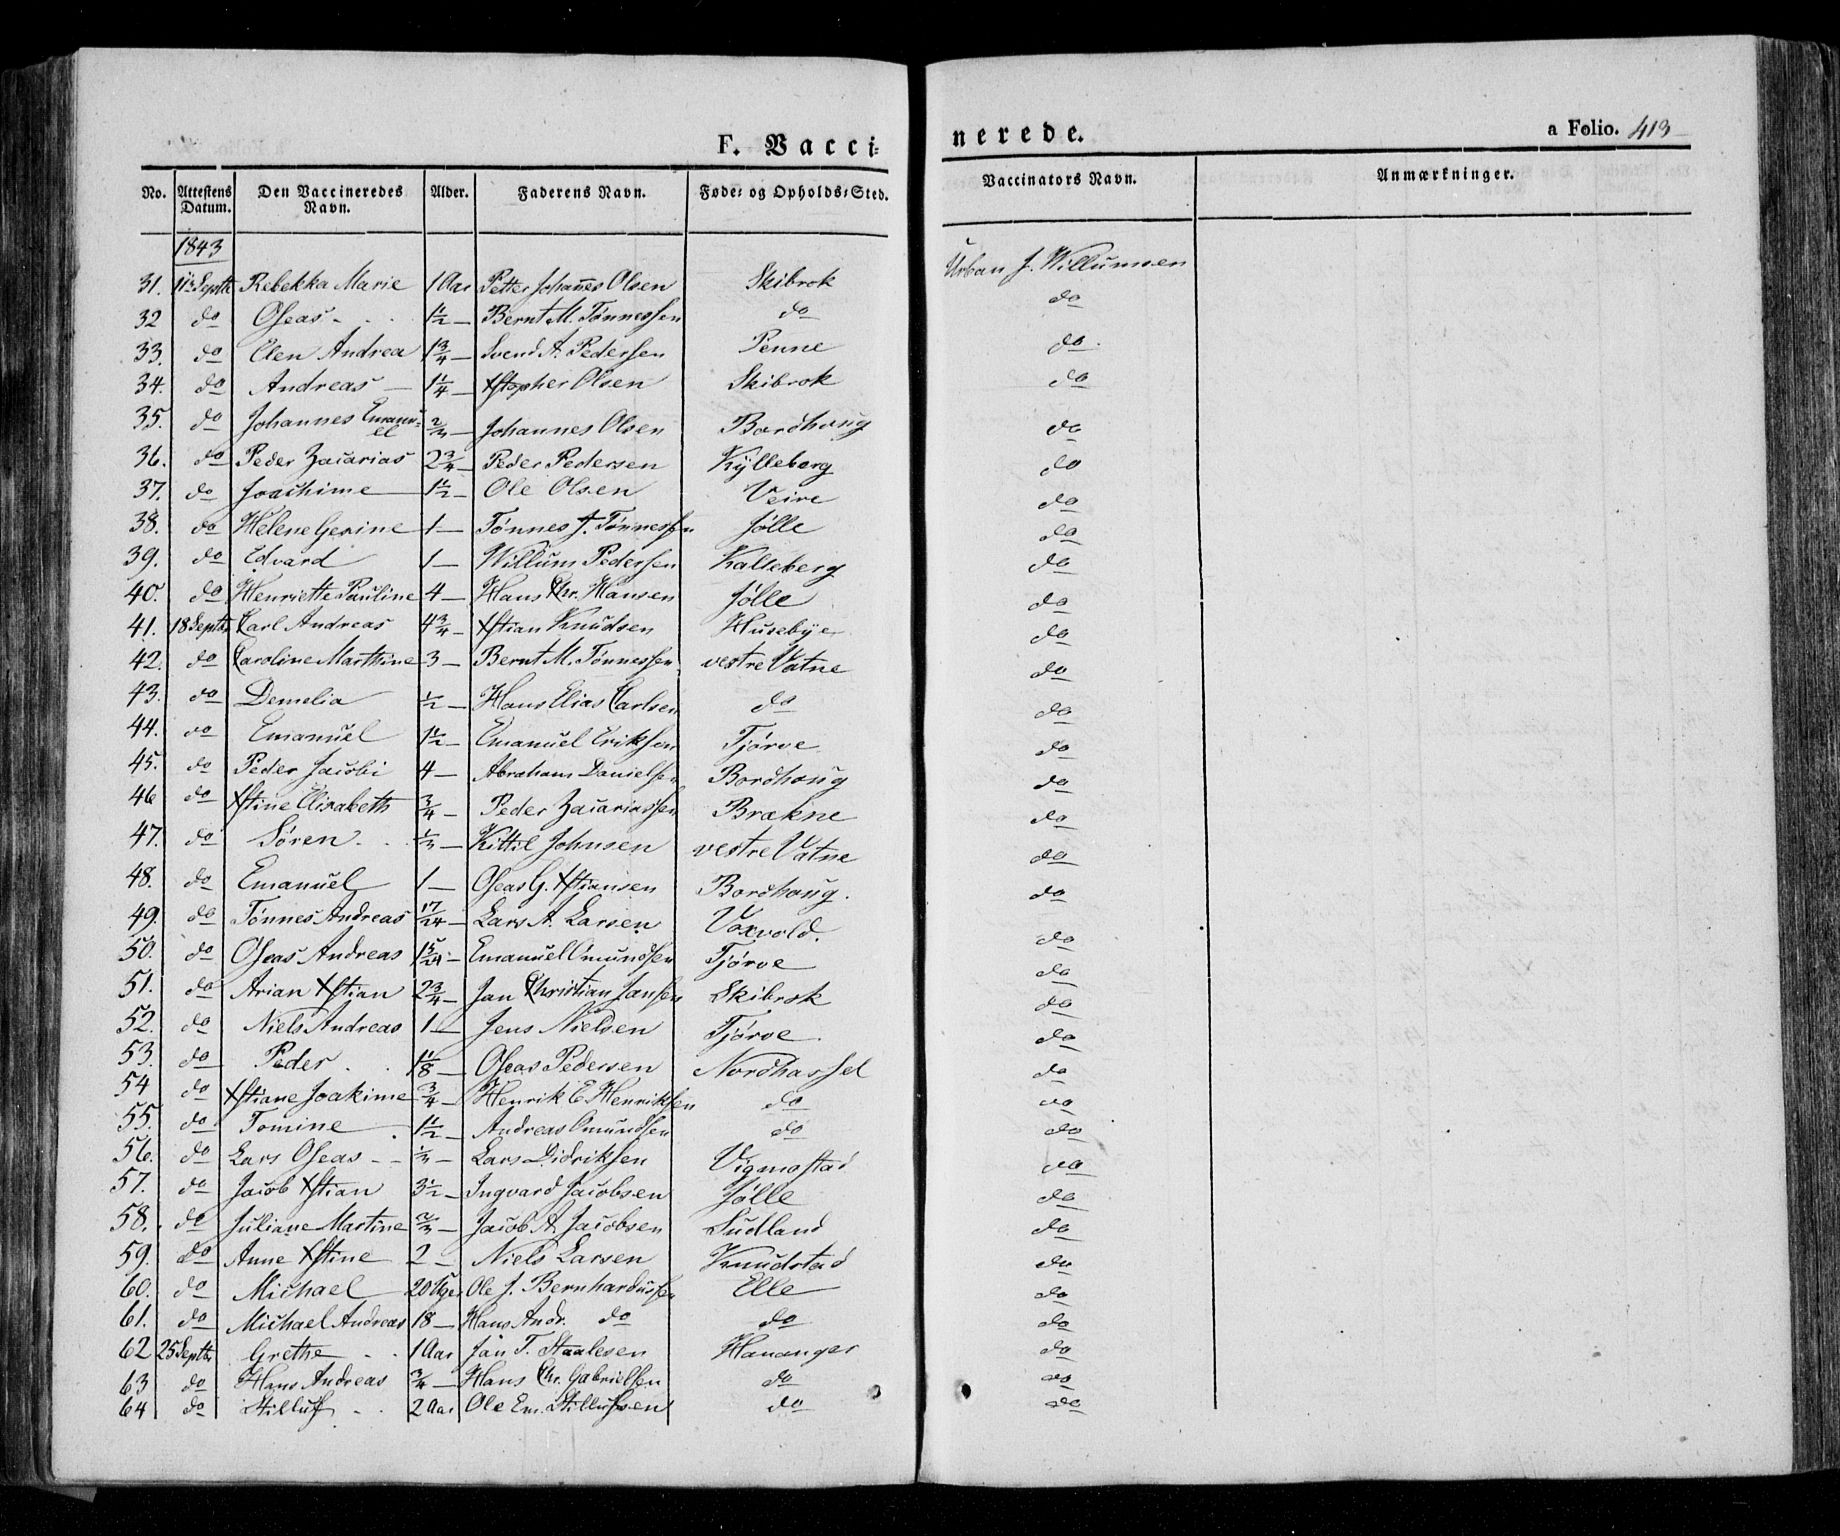 F. Vacci= nerede. a Folio. 413
No. Attestens Datum. Den Vaccineredes Navn. Alder. Faderens Navn. Føde= og Opholds=Sted. Vaccinators Navn. Anmærkninger.
1843
31. 11te Septb Rebekka Marie 1 Aar Petter Johannes Olsen Skibrok Urban J. Willumsen
32 do Oseas - 1 1/2 — Bernt M. Tønnessen do do
33. do Elen Andrea 1 3/4 — Svend A. Pedersen Penne do
34. do Andreas — 1 1/4 — Xstopher Olsen Skibrok do
35. do Johannes Emanuel 2/3 — Johannes Olsen Bordhaug do
36. do Peder Zacarias 2 3/4 — Peder Pedersen Kylleberg do
37. do Joachime 1 1/2 — Ole Olsen Veire do
38. do Helene Gerine 1 — Tønnes J. Tønnessen Jølle do
39. do Edvard 1 — Willum Pedersen Kalleberg do
40. do Henriette Pauline 4 — Hans Chr. Hansen Jølle do
41. 18 Septbr Carl Andreas 4 3/4 — Xstian Knudsen Husebye do
42. do Caroline Marthine 3 — Bernt M. Tønnessen vestre Vatne do
43. do Demelia 1/2 — Hans Elias Carlsen do do
44. do Emanuel 1 1/2 — Emanuel Eriksen Tjørve do
45. do Peder Jacobi 4 — Abraham Danielsen Bordhaug do
46 do Xstine Elisabeth 3/4 — Peder Zacariassen Brækne do
47. do Søren - 1/3 — Kittil Johnsen vestre Vatne do
48. do Emanuel 1 — Oseas G. Xstiansen Bordhaug. do
49. do Tønnes Andreas 17/24 — Lars A. Larsen Vaxvold. do
50. do Oseas Andreas 1 5/24 — Emanuel Omundsen Tjørve do
51. do Arian Xstian 2 3/4 — Jan Christian Jansen Skibrok do
52. do Niels Andreas 1 — Jens Nielsen Tjørve do
53. do Peder 1 1/8 — Oseas Pedersen Nordhassel do
54 do Xstiane Joakime 3/4 — Henrik E. Henriksen do do
55. do Tomine 1 1/2 — Andreas Omundsen do do
56. do Lars Oseas - - 1/3 — Lars Didriksen Vigmostad do
57. do Jacob Xstian 3 1/2 — Ingvard Jacobsen Jølle do
58. do Juliane Martine 2/3 — Jacob A. Jacobsen Sudland do
59. do Anne Xstine 2 — Niels Larsen Knudstad do
60. do Michael 20 Uger Ole J. Bernhardussen Elle do
61. do Michael Andreas 18 — Hans Andr. do do do
62 25 Septbr Grethe 1 Aar Jan T. Staalesen Hananger do
63 do Hans Andreas 3/4 — Hans Chr. Gabrielsen do do
64 do Stilluf - 2 Aar Ole Em. Stillufsen do do